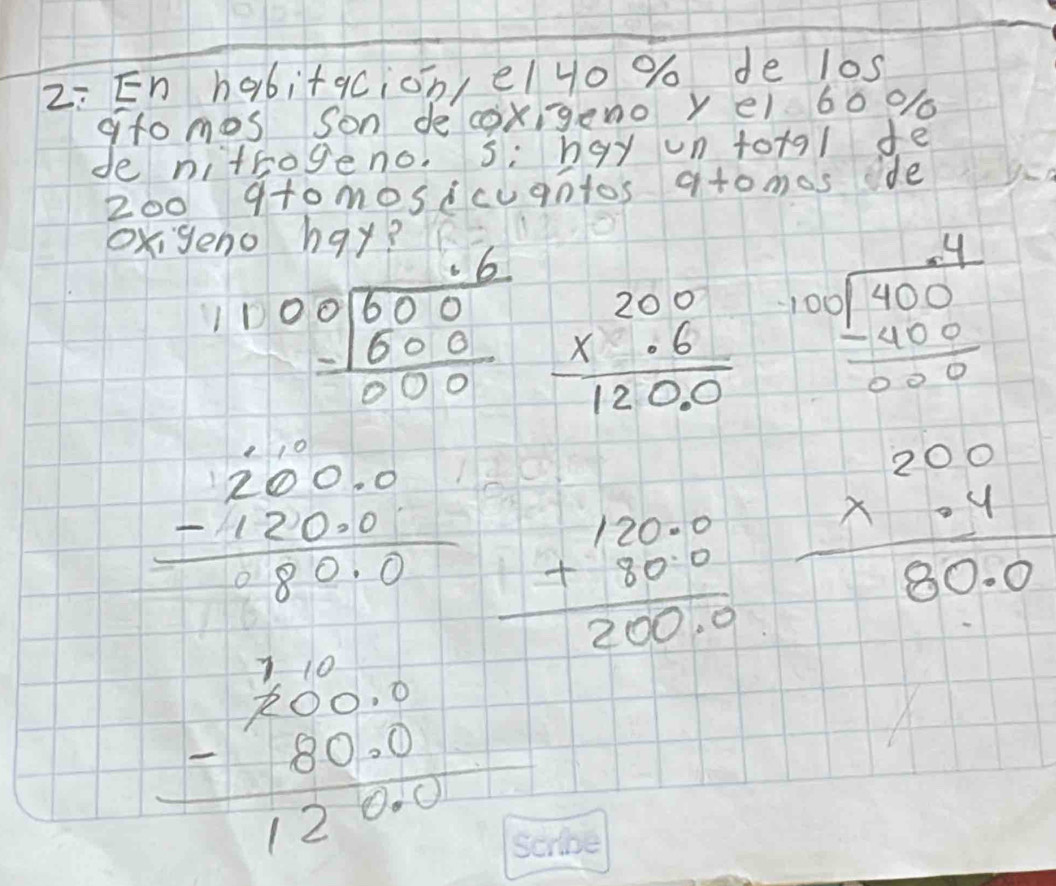 2= En habitación, el 40 % de los
átomos son de oxigeno y el 60 %
de nitrogeno. si hay un total de
200 atomos ¿cuántos atomos de
oxigeno hay?
.6
100 600
- 600
000
200
x .6
120.0
.4
100 400
- 400
000
1 10
200.0
- 120.0
080.0
120.0
+ 80.0
200.0
200
x .4
80.0
1 10
200.0
- 80.0
120.0
Scribe